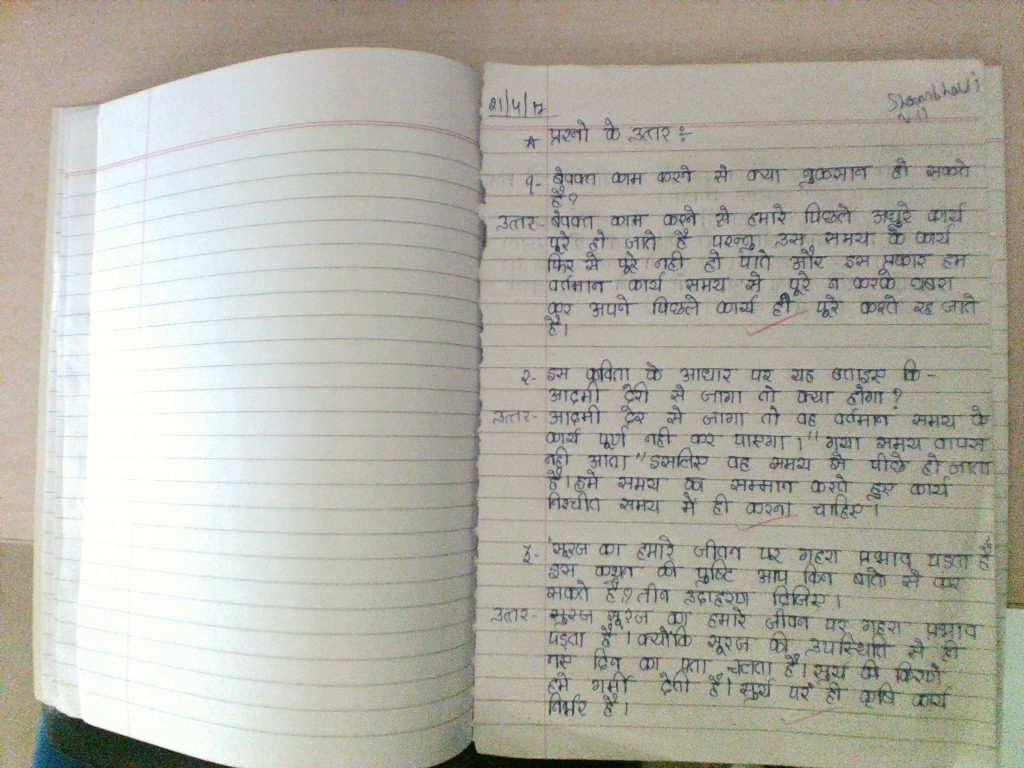 21/4/17
Shambhavi
* प्रश्नो के उत्तर :-
१- बेवक्त काम करने से क्या नुकसान हो सकते
है?
उत्तर- बेवक्त काम करने से हमारे पिछले अधुरे कार्य
पूरे हो जाते है परन्तु उस समय के कार्य
फिर से पूरे नही हो पाते और इस प्रकार हम
वर्तमान कार्य समय से पूरे न करके घबरा
कर अपने पिछले कार्य ही पूरे करते रह जाते
है।
२- इस कविता के आधार पर यह बताइए कि -
आदमी देरी से जागा तो क्या होगा?
उत्तर- आदमी देर से जागा तो वह वर्तमान समय के
कार्य पूर्ण नही कर पाएगा। "गया समय वापस
नही आता" इसलिए वह समय से पीछे हो जाता
है। हमे समय का सम्मान करते हुए कार्य
निश्चीत समय में ही करना चाहिए।
३- 'सूरज का हमारे जीवन पर गहरा प्रभाव पड़ता है'
इस कथन की पुष्टि आप किन बातो से कर
सकते है? तीन उदाहरण दिजिए।
उत्तर- सूरज सूरज का हमारे जीवन पर गहरा प्रभाव
पड़ता है। क्योंकि सूरज की उपस्थिति से ही
नए दिन का पता चलता है। सूर्य की किरणे
हमे गर्मी देती है। सूर्य पर ही कृषि कार्य
निर्भर है।